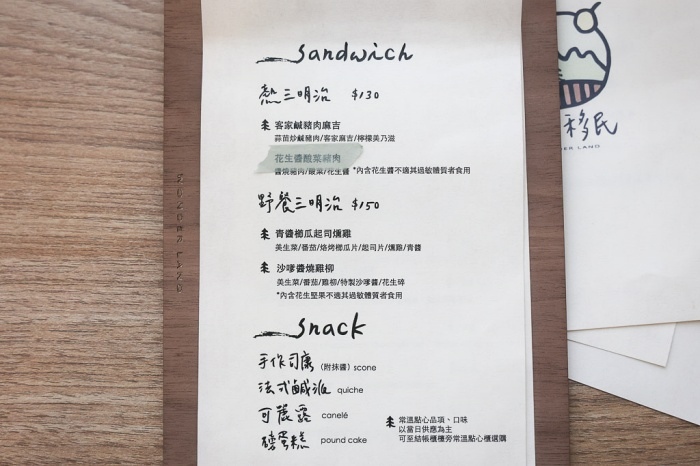 sandwich
熱三明治 $130
客家鹹豬肉麻吉
蒜苗炒鹹豬肉/客家麻吉/檸檬美乃滋
花生醬酸菜豬肉
醬燒豬肉/酸菜/花生醬 *內含花生醬不適其過敏體質者食用
野餐三明治 $150
青醬櫛瓜起司燻雞
美生菜/番茄/烙烤櫛瓜片/起司片/燻雞/青醬
沙嗲醬燒雞柳
美生菜/番茄/雞柳/特製沙嗲醬/花生碎
*內含花生堅果不適其過敏體質者食用
snack
手作司康 (附抹醬) scone
法式鹹派 quiche
可麗露 canelé
磅蛋糕 pound cake
常溫點心品項、口味
以當日供應為主
可至結帳櫃檯旁常溫點心櫃選購
移民
LAND